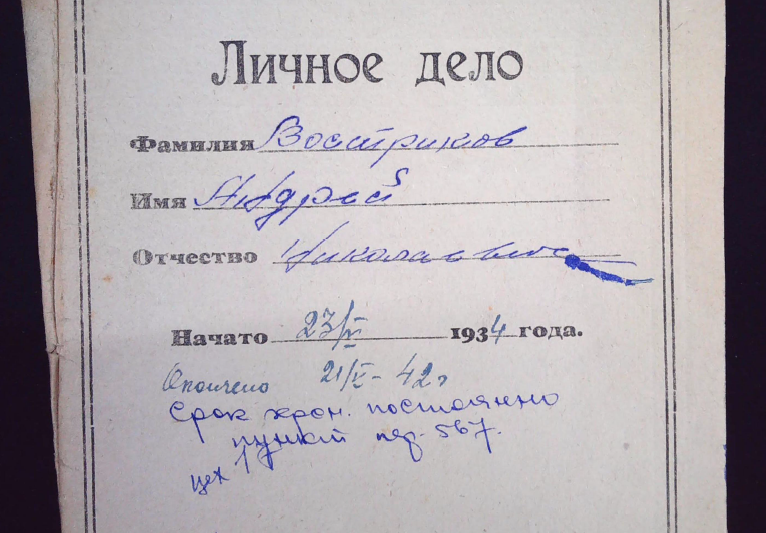 Личное дело
Фамилия Востриков
Имя Андрей
Отчество Николаевич
Начато 23/V 1934 года.
Окончено 21/V - 42г
Срок хран. постоянно
пункт пер. 567.
цех 1